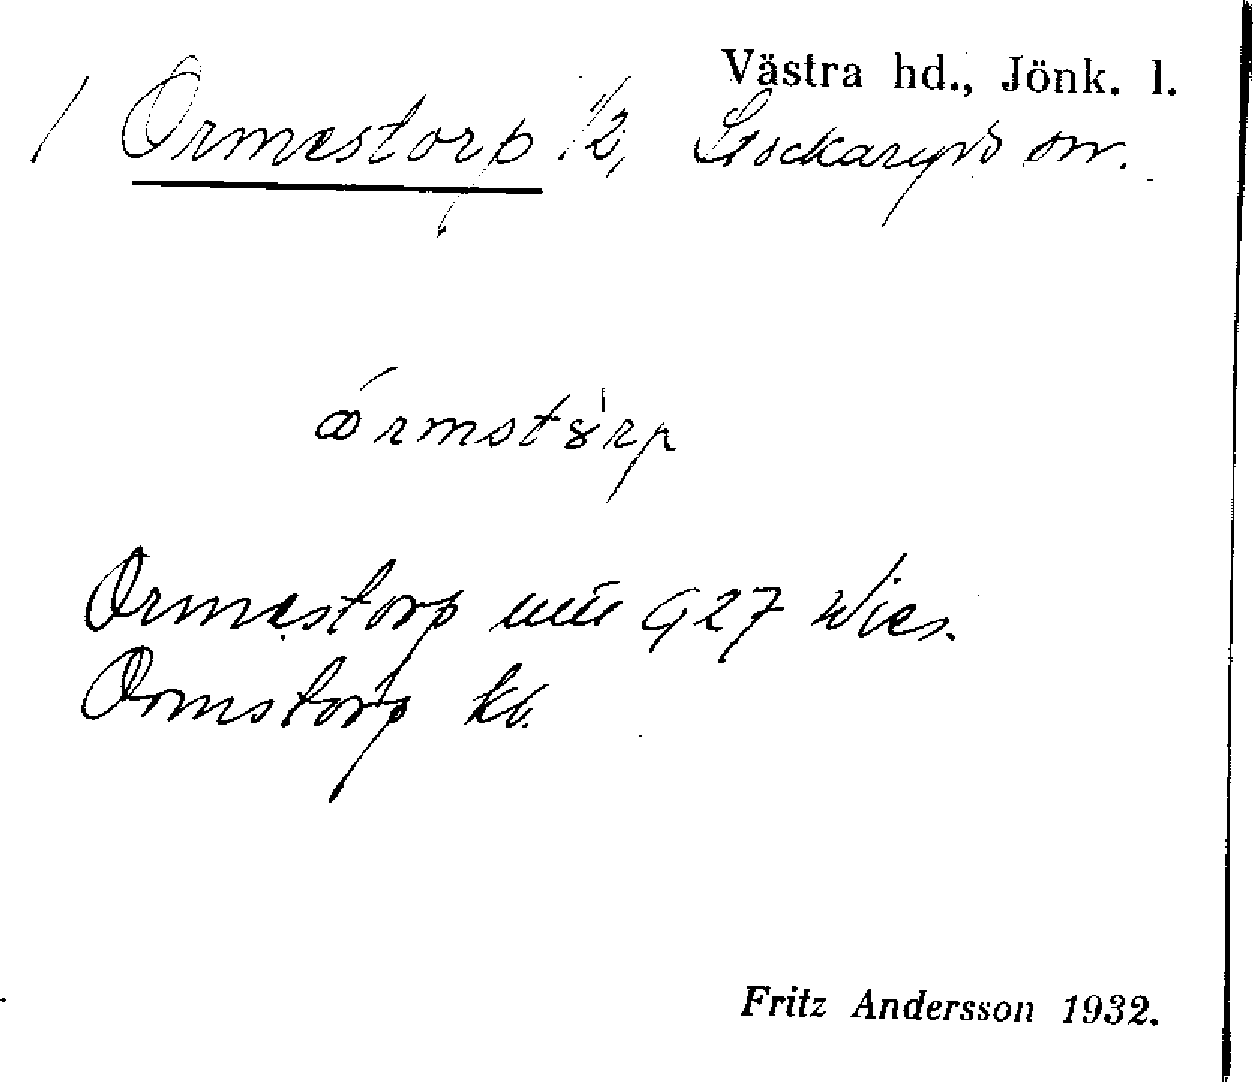 Västra hd., Jönk. l.
/ Ormestorp 1/2, Stockaryds sn.
Ormestorp 927 Wies.
Ormstorp kb.
Fritz Andersson 1932.